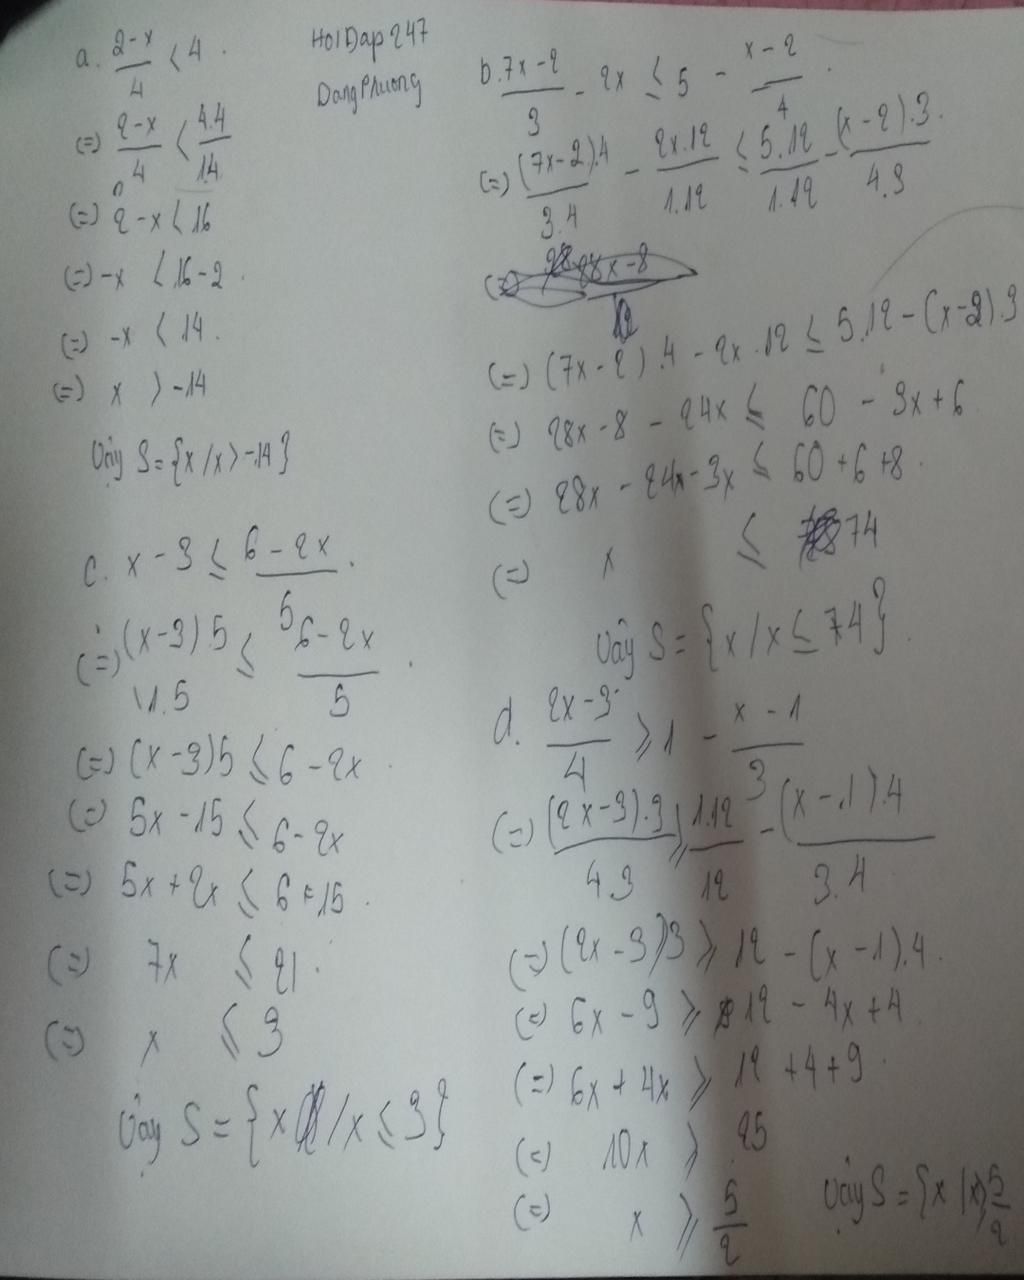 a. \frac{2-x}{4} < 4.
(=) \frac{2-x}{4} < \frac{4.4}{1.4}
(=) 2-x < 16
(=) -x < 16-2
(=) -x < 14.
(=) x > -14
Vậy S={x/x>-14}
HoiDap247
DangPhuong
c. x-3 ≤ \frac{6-2x}{5}.
(=) \frac{(x-3).5}{1.5} ≤ \frac{6-2x}{5}.
(=) (x-3)5 ≤ 6-2x
(=) 5x-15 ≤ 6-2x
(=) 5x+2x ≤ 6+15.
(=) 7x ≤ 21.
(=) x ≤ 3
Vậy S={x/x≤3}
b. \frac{7x-2}{3} - 2x ≤ 5 - \frac{x-2}{4}.
(=) \frac{(7x-2).4}{3.4} - \frac{2x.12}{1.12} ≤ \frac{5.12}{1.12} - \frac{(x-2).3}{4.3}.
(=) (7x-2).4 - 2x.12 ≤ 5.12 - (x-2).3
(=) 28x-8 - 24x ≤ 60 - 3x+6
(=) 28x - 24x-3x ≤ 60+6+8.
(=) x ≤ 74
Vậy S={x/x≤74}.
d. \frac{2x-3}{4} ≥ 1 - \frac{x-1}{3}
(=) \frac{(2x-3).3}{4.3} ≥ \frac{1.12}{12} - \frac{(x-1).4}{3.4}
(=) (2x-3)3 ≥ 12 - (x-1).4.
(=) 6x-9 ≥ 12 - 4x+4
(=) 6x+4x ≥ 12+4+9.
(=) 10x ≥ 25
(=) x ≥ \frac{5}{2}
Vậy S={x/x≥\frac{5}{2}